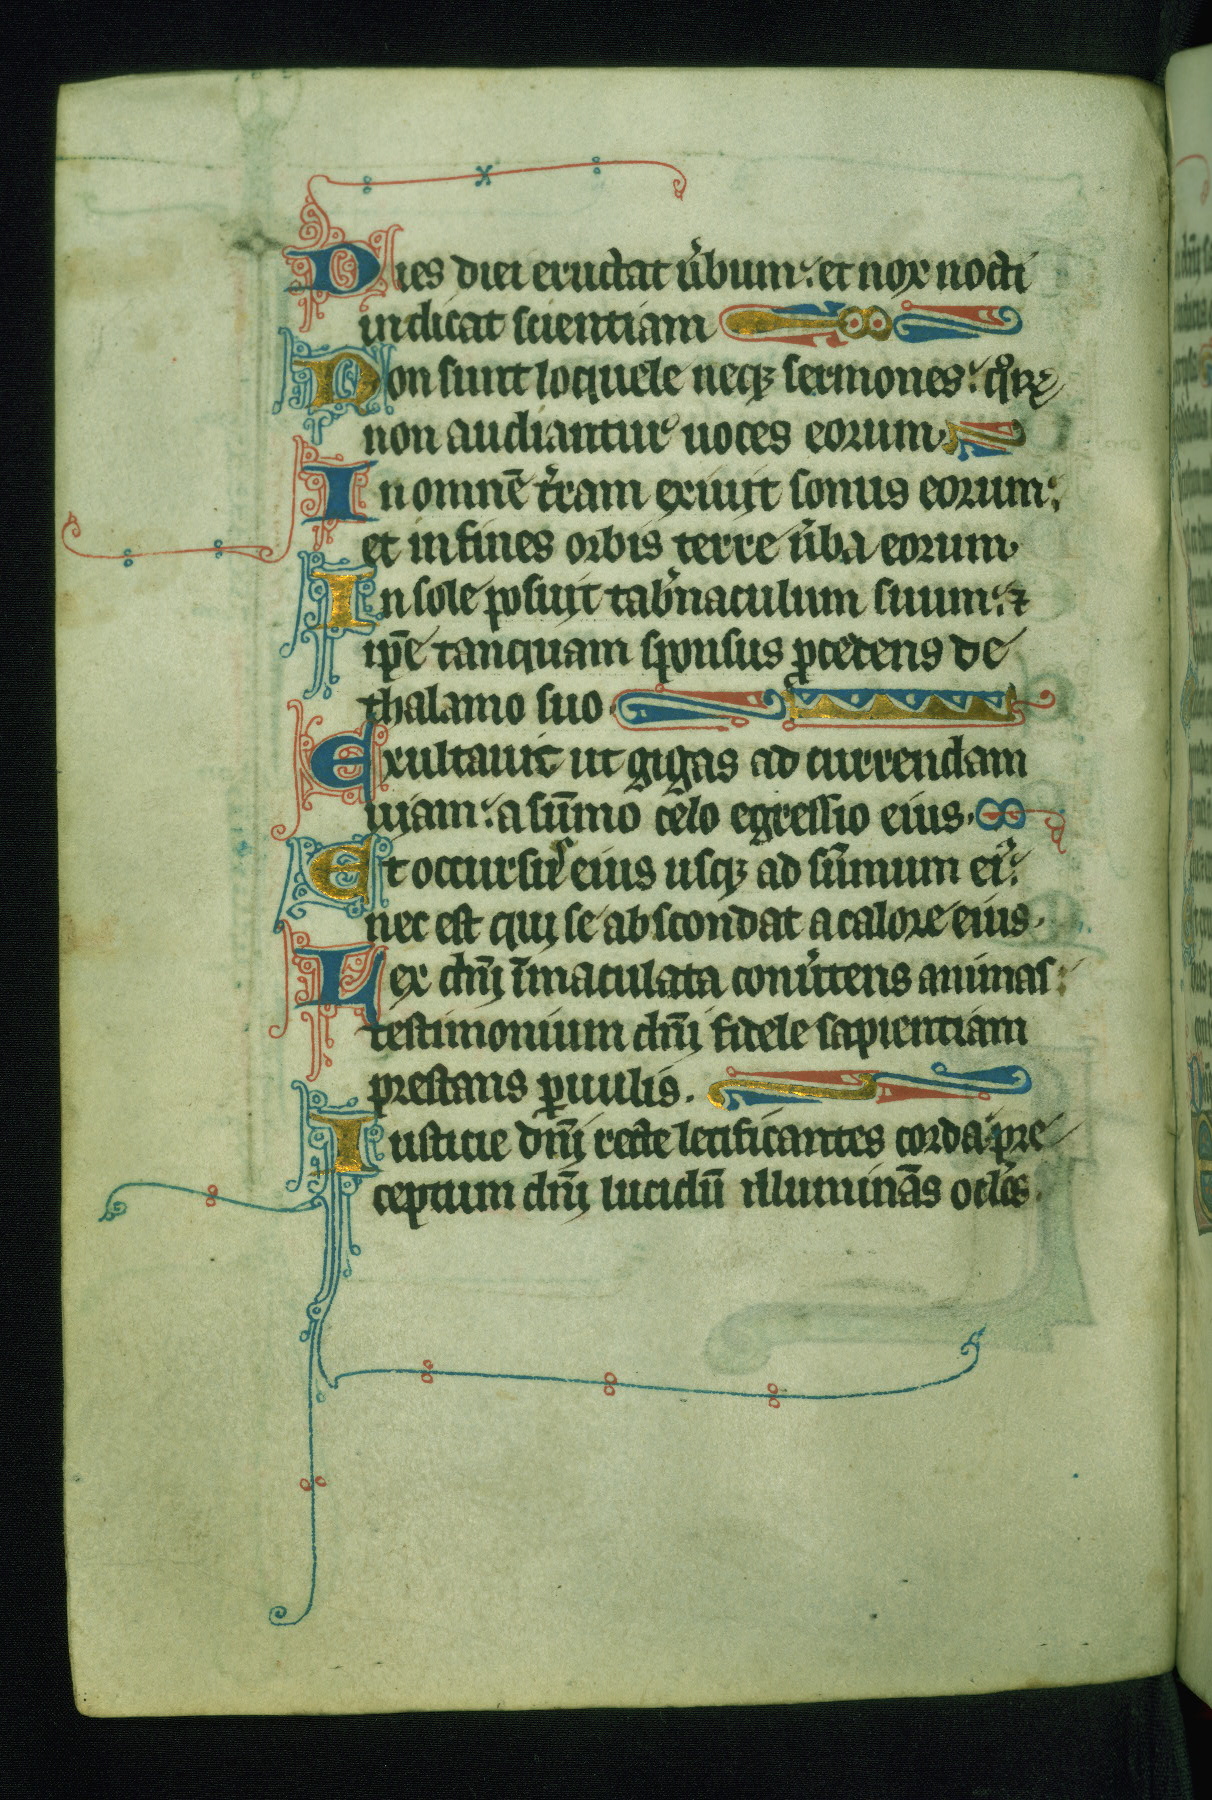 Dies diei eructat ùbum: et nox nocti
indicat scientiam
Non sunt loquele neq; sermones: qoꝝ
non audiantur uoces eorum.
In omnē tràm exiuit sonus eorum:
et in fines orbis terre ùba eorum.
In sole posuit tabǹaculum suum: ⁊
ip̄e tanquam sponsus ꝓcedens de
thalamo suo.
Exultauit ut gigas ad currendam
uiam: a sūmo celo egressio eius.
Et occursus eius usq; ad sūmum ei᷒:
nec est qui se abscondat a calore eius.
Lex dn̄i īmaculata conùtens animas:
testimonium dn̄i fidele sapientiam
prestans ꝑuulis.
Iusticie dn̄i recte letificantes corda: pre
ceptum dn̄i lucidū illuminās oclos.